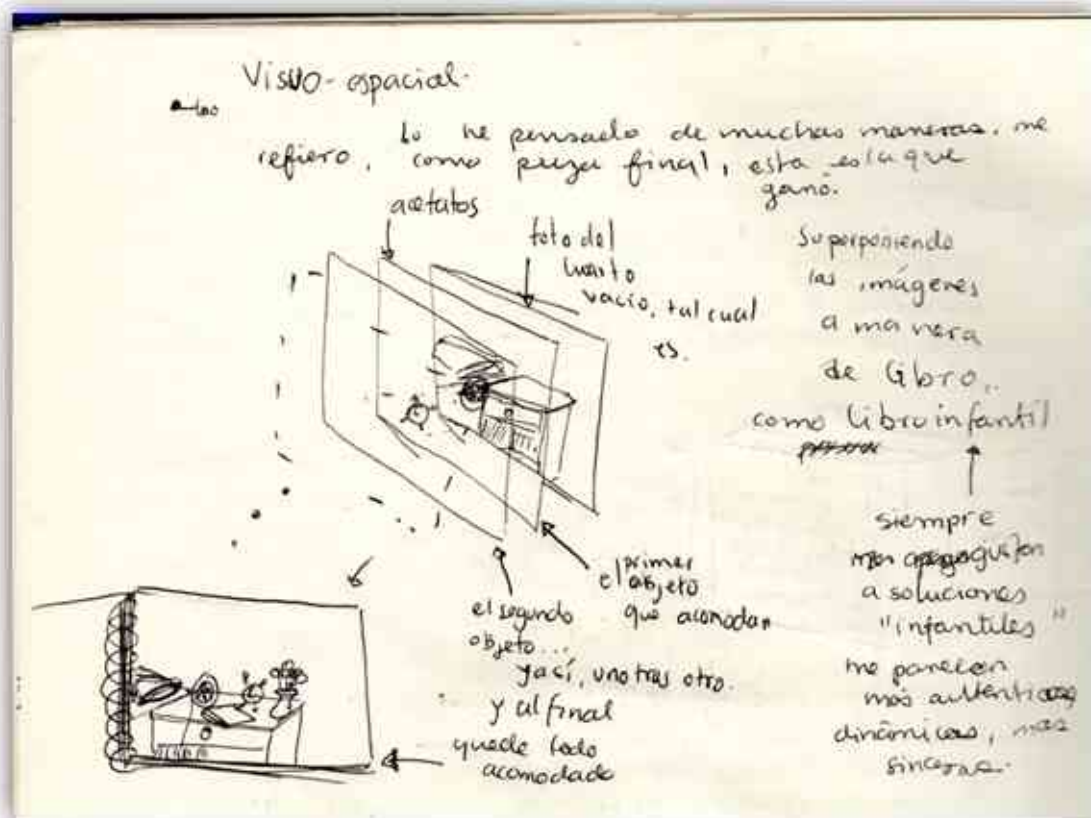 Visuo-espacial.
lo he pensado de muchas maneras, me
refiero, como pieza final, esta es la que
ganó.
acetatos
foto del
cuarto
vacío, tal cual
es.
Superponiendo
las imágenes
a manera
de libro,
como libro infantil
siempre
me gustan
a soluciones
"infantiles"
me parecen
más auténticas,
dinámicas, más
sinceras.
el primer
objeto
que acomodan
el segundo
objeto...
y así, uno tras otro.
y al final
quede todo
acomodado